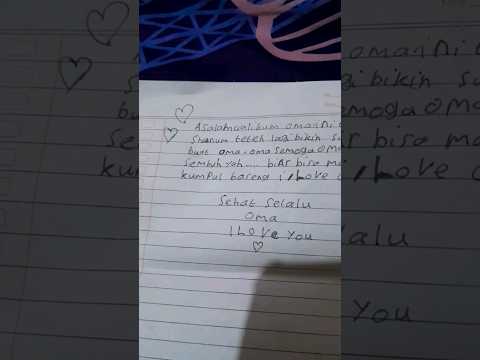 Asalamualikum oma ini
Shanum teteh lagi bikin
buat oma. oma semoga oma
sembuh yah.... biAr bisa
kumpul bareng i, Love
Sehat Selalu
oma
I LOVe You